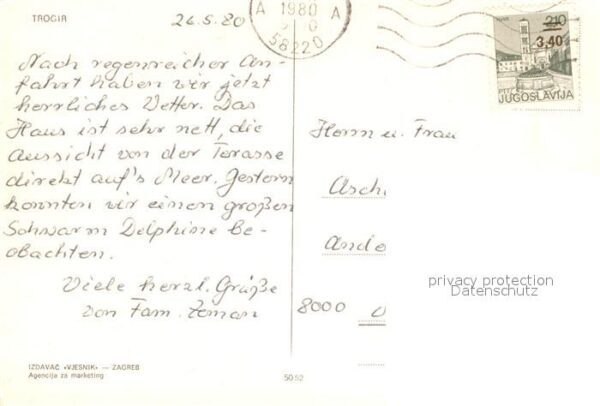 TROGIR
26.5.80
Nach regenreicher An-
fahrt haben wir jetzt
herrliches Wetter. Das
Haus ist sehr nett, die
Aussicht von der Terasse
direkt auf's Meer. Gestern
konnten wir einen großen
Schwarm Delphine be-
obachten.
Viele herzl. Grüße
von Fam. Zeman
IZDAVAČ «VJESNIK» — ZAGREB
Agencija za marketing
5052
A 1980 A
58220
2.10
3,40
PTT
JUGOSLAVIJA
Herrn u. Frau
Asch
Ande
8000
privacy protection
Datenschutz